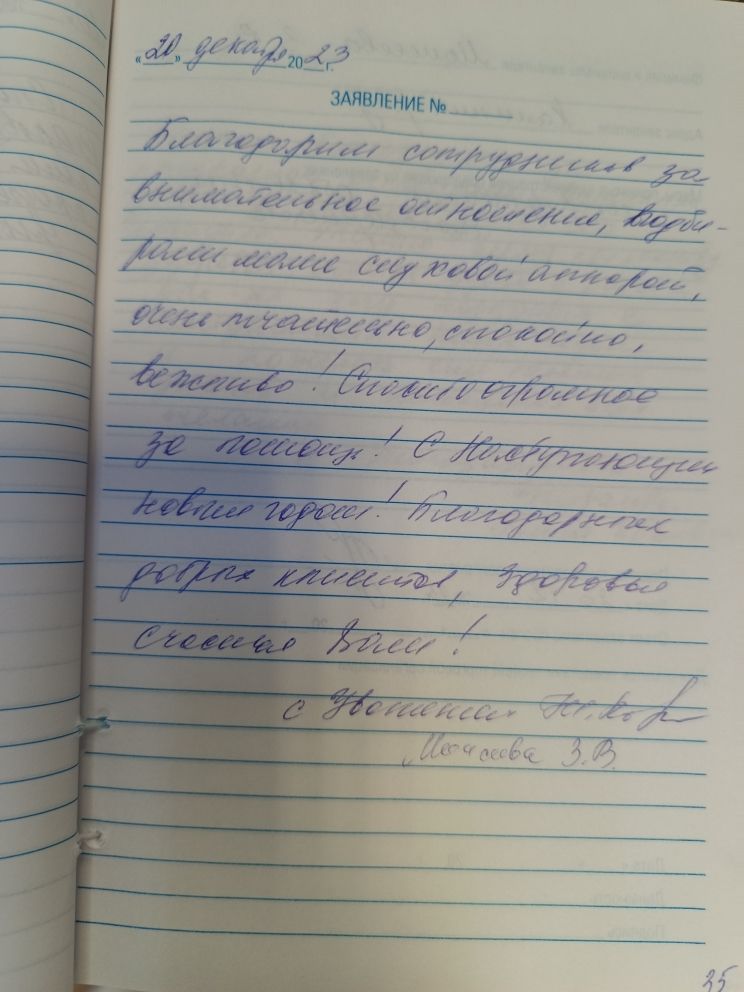 «20» декабря 2023 г.
ЗАЯВЛЕНИЕ №
Благодарим сотрудников за
внимательное отношение, подби-
рали маме слуховой аппарат,
очень тщательно, спокойно,
вежливо! Спасибо огромное
за помощь! С Наступающим
новым годом! Благодарных
добрых клиентов, Здоровья
счастья Вам!
с Уважением
З.В.
35